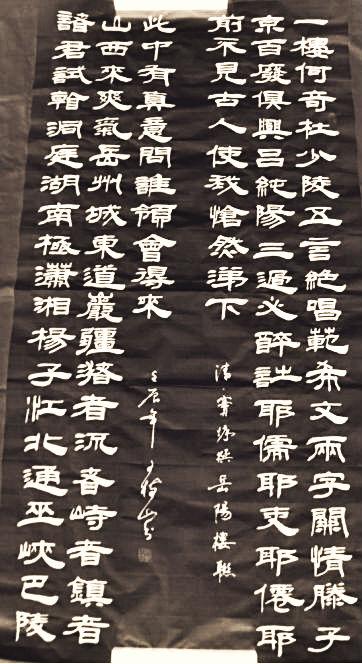 一樓何奇杜少陵五言絕唱範希文兩字關情滕子
京百廢俱興呂純陽三過必醉詩耶儒耶吏耶僊耶
前不見古人使我愴然涕下
清竇垿撰岳陽樓聯
諸君試看洞庭湖南極瀟湘楊子江北通巫峽巴陵
山西來爽氣岳州城東道巖疆瀦者流者峙者鎮者
此中有真意問誰領會得來
壬辰年